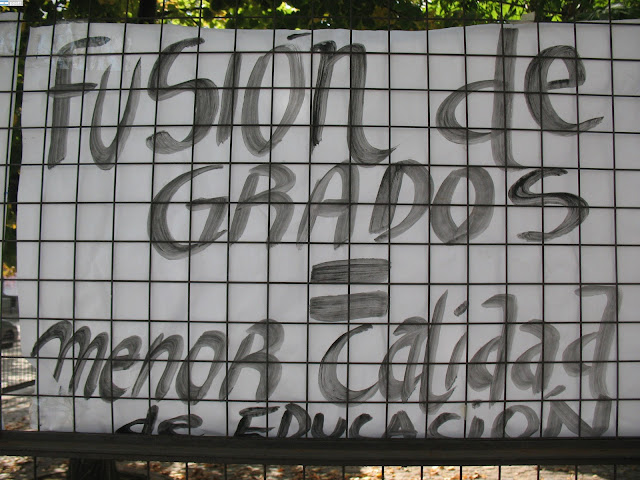 FUSIÓN de
GRADOS
=
menor calidad
de EDUCACIÓN